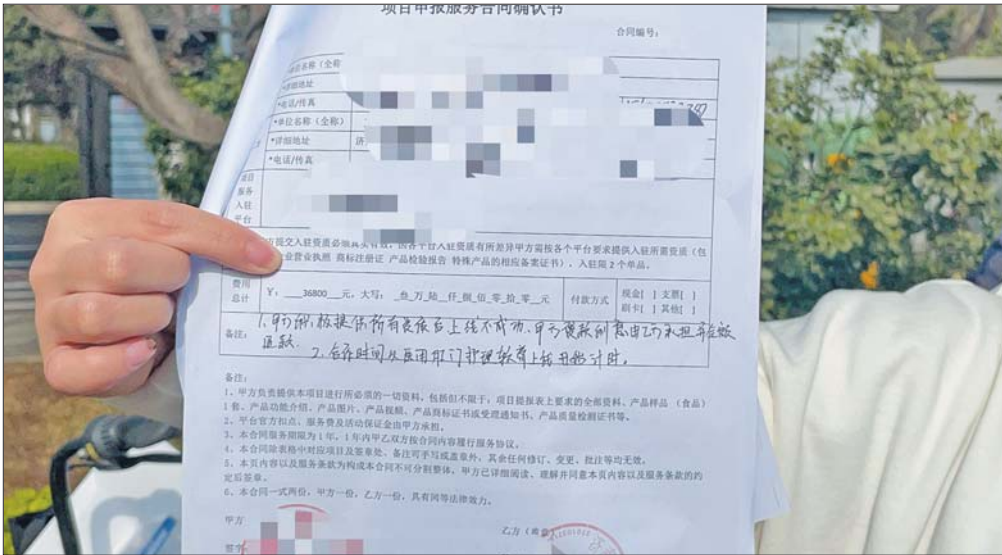 项目申报服务合同确认书
合同编号：
单位名称（全称
*详细地址
*电话/传真
*单位名称（全称）
*详细地址 济
*电话/传真
项目
服务
入驻
平台
方提交入驻资质必须真实有效，因各平台入驻资质有所差异甲方需按各个平台要求提供入驻所需资质（包
业营业执照 商标注册证 产品检验报告 特殊产品的相应备案证书），入驻限 2 个单品。
费用
总计
￥：___36800___元，大写：_叁_万_陆_仟_捌_佰_零_拾_零_元
付款方式
现金[ ] 支票[ ]
刷卡[ ] 其他[ ]
备注：
1、甲方积极提供所有资质后上线不成功，甲方贷款利息由乙方承担并全额
退款.
2、合作时间从
上线开始计时.
备注：
1、甲方负责提供本项目进行所必须的一切资料，包括但不限于：项目提报表上要求的全部资料、产品样品 （食品）
1 套、产品功能介绍、产品图片、产品视频、产品商标证书或受理通知书、产品质量检测证书等。
2、平台官方扣点、服务费及活动保证金由甲方承担。
3、本合同服务期限为 1 年，1 年内甲乙双方按合同内容履行服务协议。
4、本合同除表格中对应项目及签章处、备注可手写或盖章外，其余任何修订、变更、批注等均无效。
5、本页内容以及服务条款为构成本合同不可分割整体，甲方已详细阅读、理解并同意本页内容以及服务条款的约
定后签章。
6、本合同一式两份，甲方一份，乙方一份，具有同等法律效力。
甲方
乙方（
签字